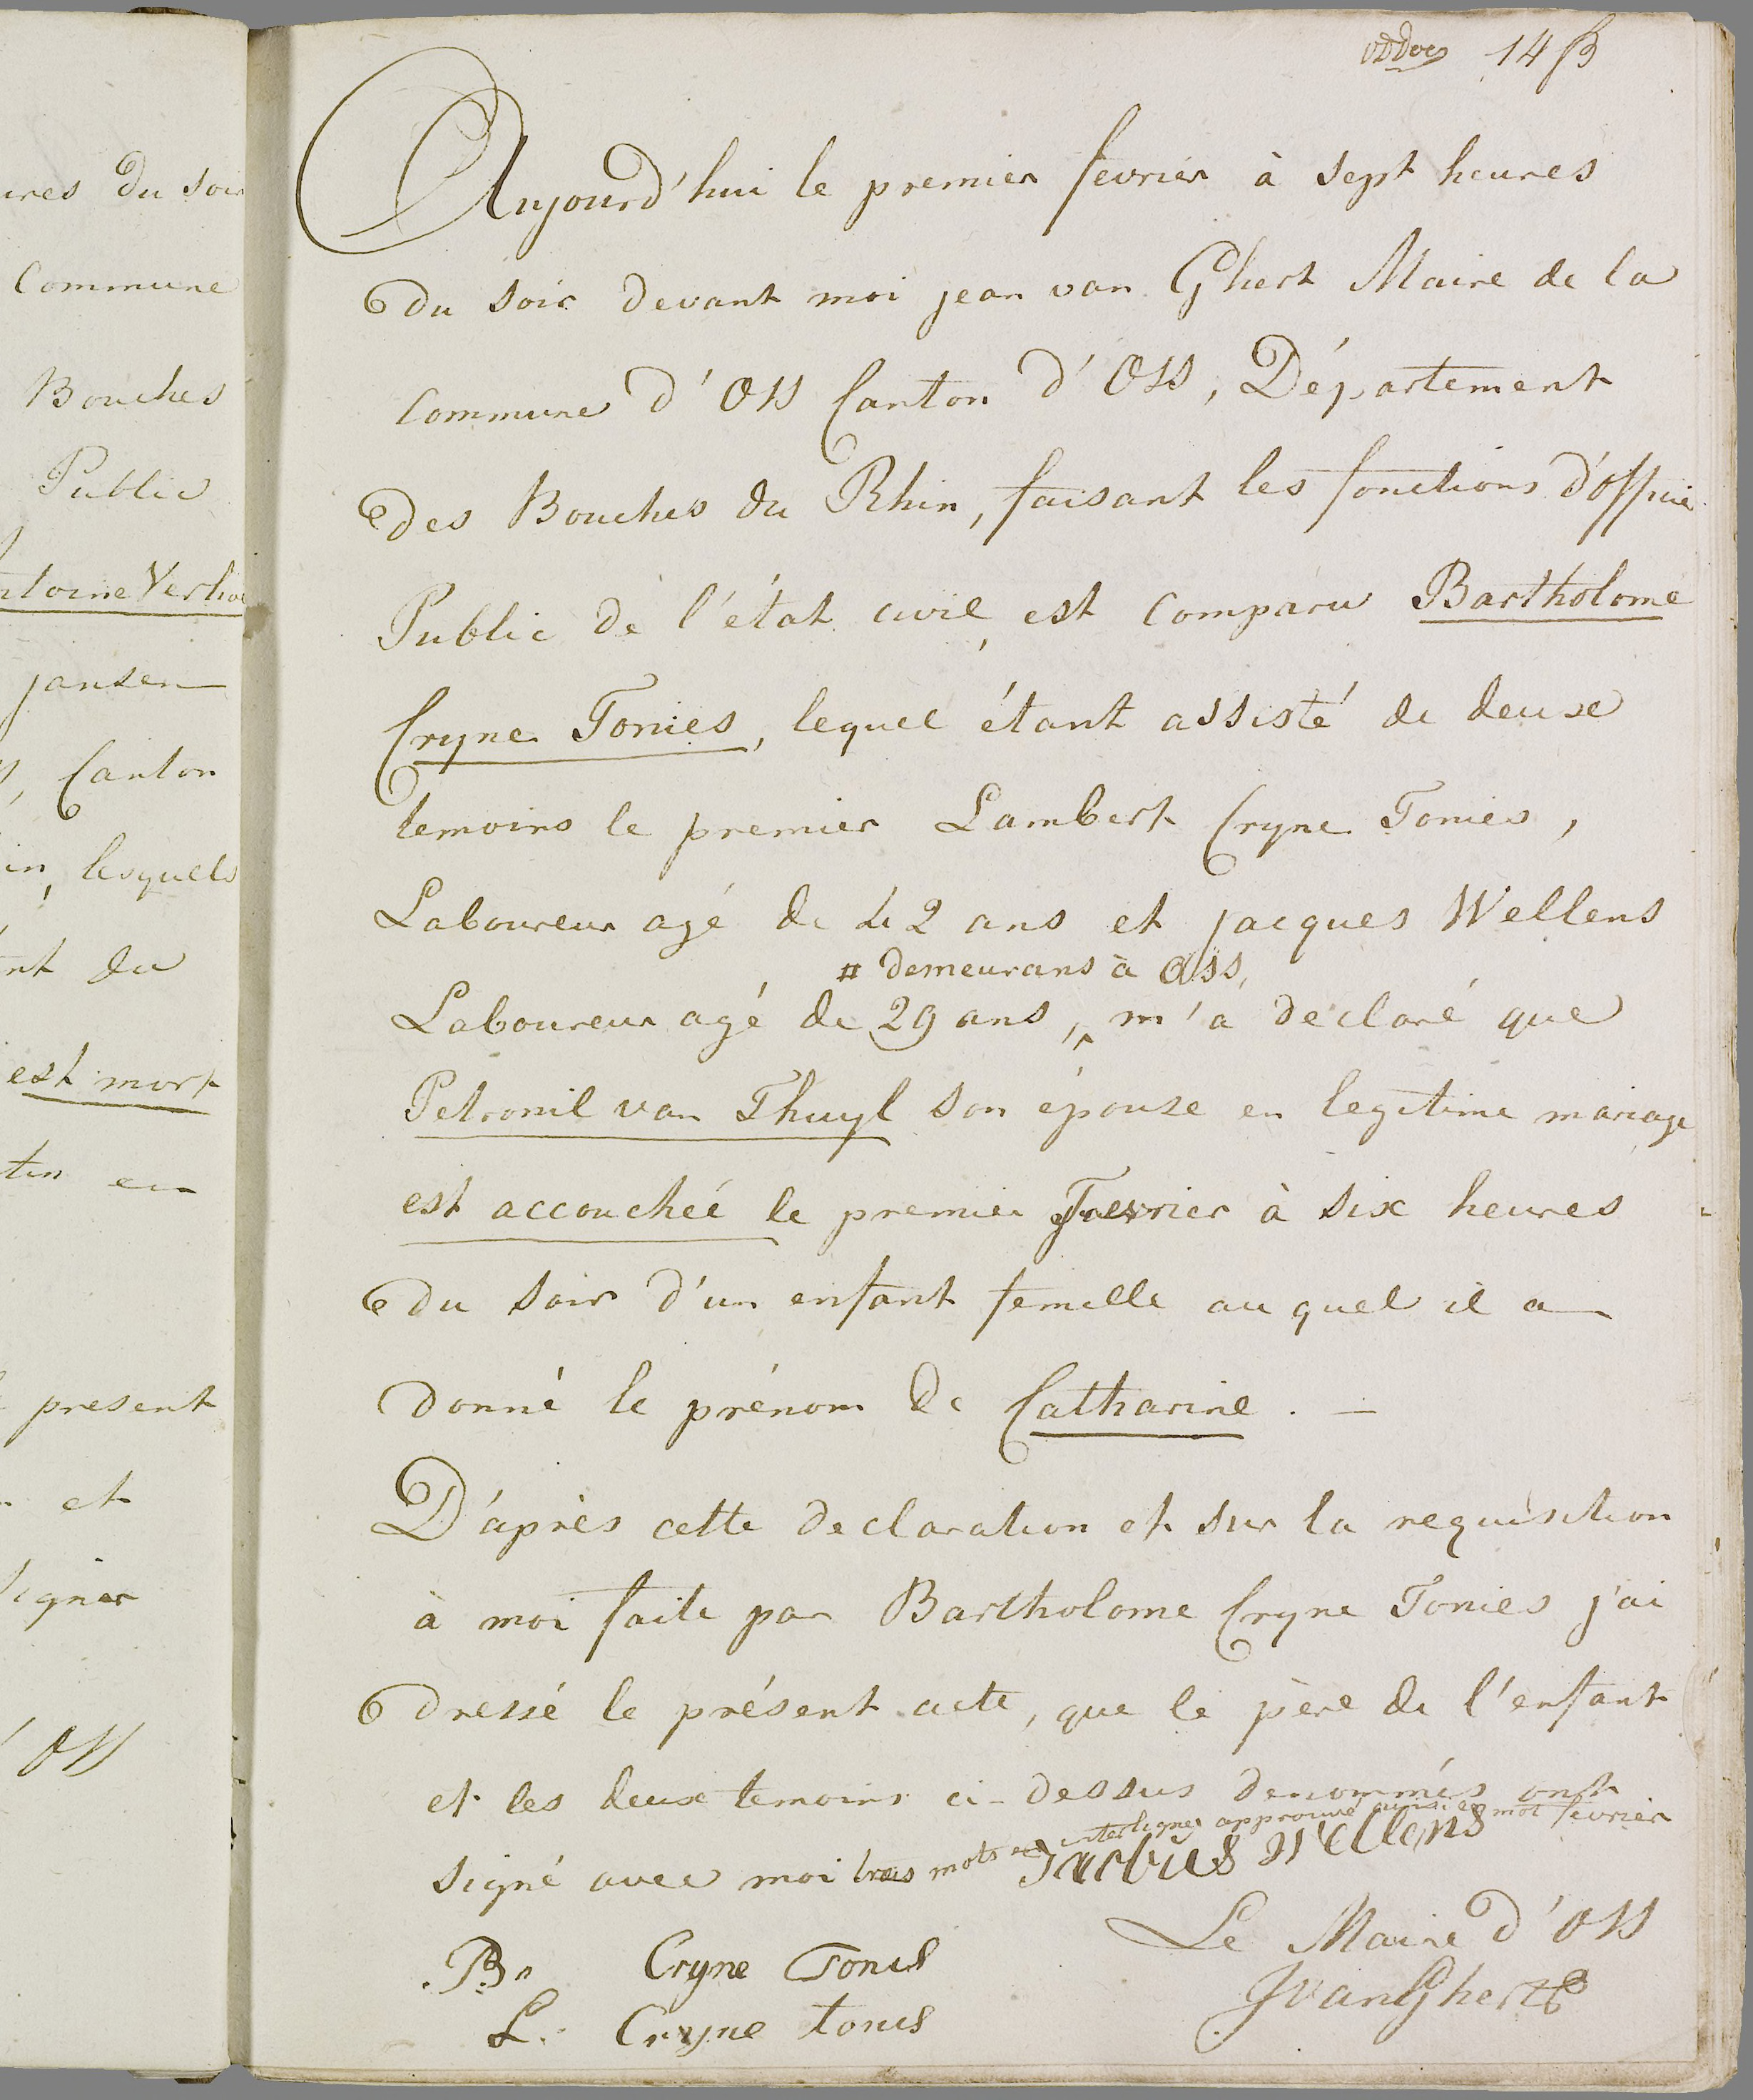 ures du soir
Commune
Bouches
Public
ntoine Verhoe
jansen
Canton
in, lesquels
nt du
est mort
tin en
present
et
signer
Oss
14
Aujourd'hui le premier fevrier à sept heures
du soir devant moi jean van Ghert Maire de la
Commune d'Oss Canton d'Oss, Département
des Bouches du Rhin, faisant les fonctions d'officie
Public de l'état civil, est comparu Bartholome
Cryne Tonies, lequel étant assisté de deux
temoins le premier Lambert Cryne Tonies,
Laboureur agé de 42 ans et jacques Wellens
# demeurans à Oss,
Laboureur agé de 29 ans, m'a declaré que
Petronil van Thuyl son épouse en legitime mariage
est accouchéé le premier Fevrier à six heures
du soir d'un enfant femelle au quel il a
donné le prénom de Catharine. —
D'après cette declaration et sur la requisition
à moi faite par Bartholome Cryne Tonies j'ai
dressé le présent acte, que le père de l'enfant
et les deux temoins ci-dessus denommés ont
signé avec moi trois mots interligner approuvé mot fevrier
Jacobus Wellens
Br Cryne Tonis
L. Cryne tonis
Le Maire d'Oss
JvanGhert